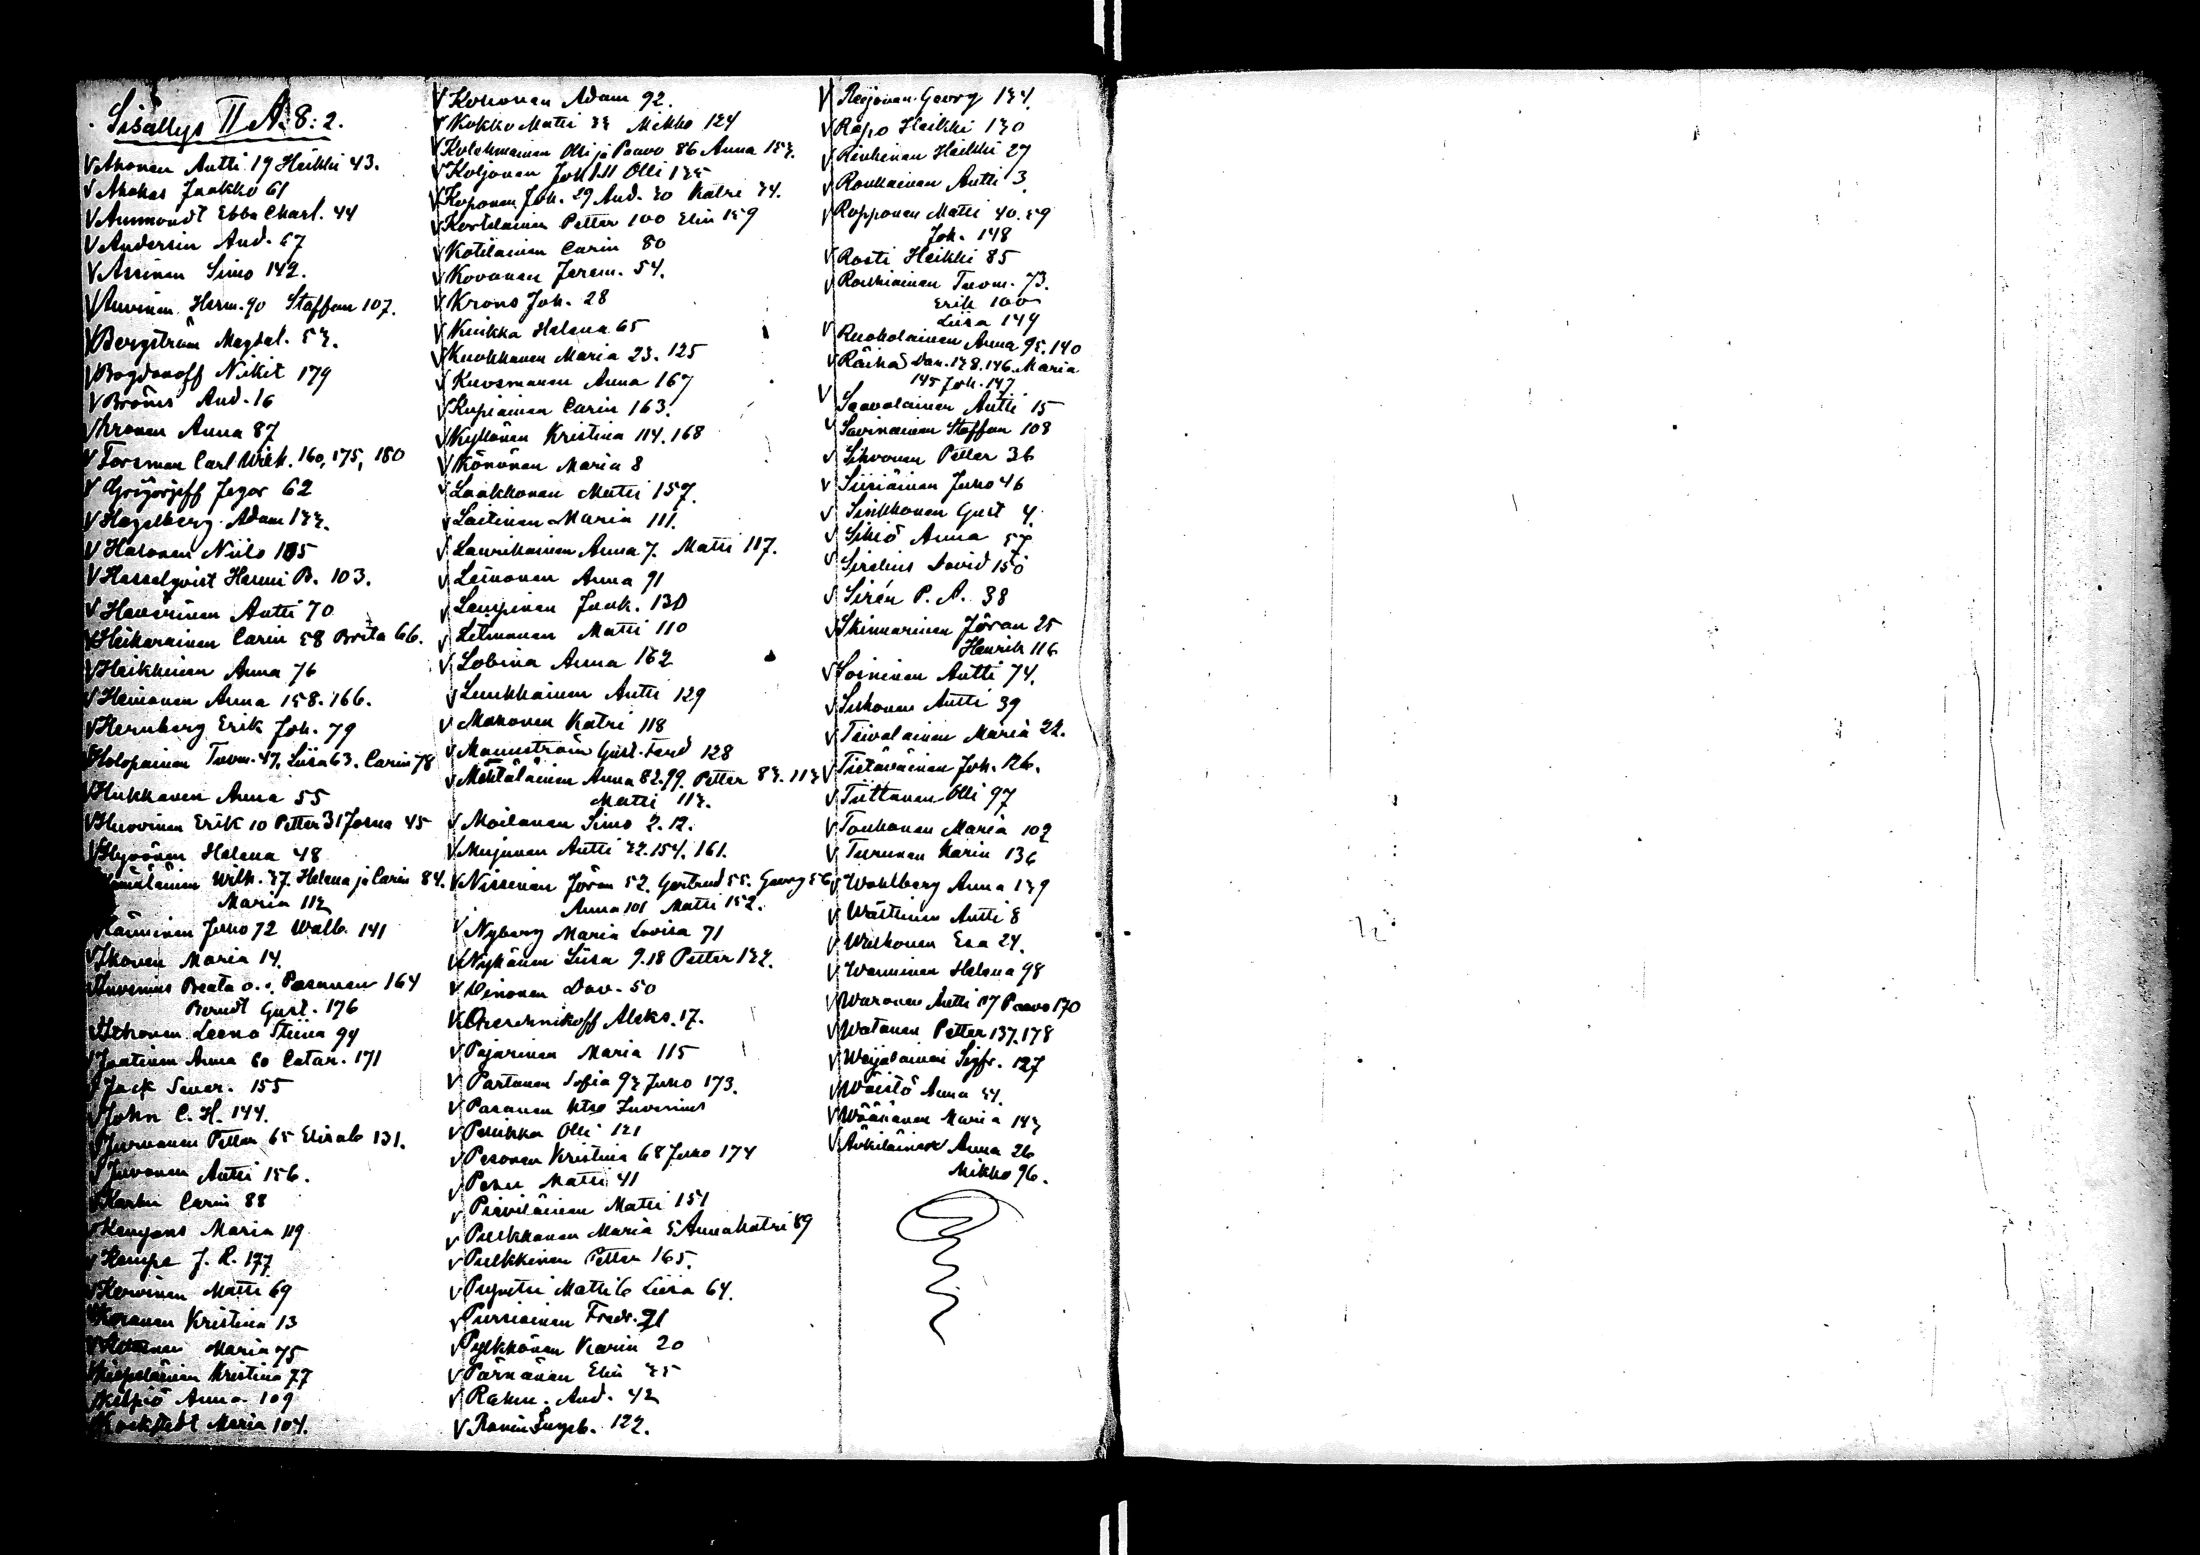 Sisällys II A. 8:2.
V Ahonen Antti 19 Heikki 43.
V Akakas Jaakko 61
V Ammondt Ebba Charl. 44
V Andersin And. 67
V Assinen Simo 142.
V Auvinen Herm. 90 Staffan 107.
V Bergström Magdal. 53.
V Bogdanoff Nikit 179
V Broms And. 16
V Eronen Anna 87
V Forsman Carl Wilh. 160, 175, 180
V Grigorjeff Jegor 62
V Hagelberg Adam 133.
V Halonen Niilo 105
V Hasselqvist Hanni B. 103.
V Heiskanen Antti 70
V Heikarainen Carin 58 Brita 66.
V Heikkinen Anna 76
V Heinonen Anna 158. 166.
V Hernberg Erik Joh. 79
V Holopainen Tuom. 47. Liisa 63. Carin 78
V Hukkanen Anna 55
V Huovinen Erik 10 Petter 31 Josua 45
V Hyvönen Helena 48
Wilh. 37. Helena ja Carin 84.
Maria 112
Hänninen Juho 72 Walb. 141
V Ikonen Maria 14.
V Juvenius Beata o.s. Pasanen 164
Berndt Gust. 176
V Itkonen Leena Stiina 94
V Jaatinen Anna 60 Catar. 171
V Jack Sever. 155
V John C. H. 144.
V Jurvanen Petter 65 Elisab 131.
V Juvonen Antti 156.
V Karhu Carin 88
V Kenjans Maria 119
V Kempe J. R. 177
V Kervinen Matti 69
V Keranen Kristina 13
Maria 75
V Kiepeläinen Kristina 77
V Kilpiö Anna 109
V Kockstedt Maria 104.
V Kohonen Adam 92.
V Kokko Matti 33 Mikko 124
V Kolehmainen Olli ja Paavo 86 Anna 153.
V Koljonen Joh 1.11 Olli 135
V Koponen Joh. 29 And. 30 Katri 34.
V Kortelainen Petter 100 Elin 159
V Kotilainen Carin 80
V Kovanen Jerem. 54.
V Krons Joh. 28
V Kuikka Helena 65
V Kuokkanen Maria 23. 125
V Kuosmanen Anna 167
V Kupiainen Carin 163.
V Kyllönen Kristina 114. 168
V Könönen Maria 8
V Laakkonen Matti 157.
V Laitinen Maria 111.
V Laurikainen Anna 7. Matti 117.
V Leinonen Anna 91
V Lempinen Jaak. 130
V Litmanen Matti 110
V Lobina Anna 162
V Luukkainen Antti 129
V Makonen Katri 118
V Mannström Gust. Ferd 128
V Mehtäläinen Anna 82. 99. Petter 83. 113
Matti 113.
V Moilanen Simo 2. 12.
V Mujunen Antti 32. 154. 161.
V Nissinen Jöran 52. Gertrud 55. Georg 56
Anna 101 Matti 152.
V Nyberg Maria Lovisa 71
V Nykänen Liisa 9. 18 Petter 132.
V Oinonen Dav. 50
V Oreschnikoff Aleks. 17.
V Pajarinen Maria 115
V Partanen Sofia 93 Juho 173.
V Pasanen ktso Juvenius
V Pelukka Olli 121
V Pesonen Kristina 68 Juho 174
V Pesu Matti 41
V Pieviläinen Matti 151
V Pulkkanen Maria 5 Anna Katri 89
V Pulkkinen Petter 165.
V Puputti Matti 6 Liisa 64.
V Pursiainen Fredr. 21
Pylkkönen Karin 20
V Pärnänen Elin 35
V Rahm. And. 42
V Ronin Ingeb. 122.
V Reijonen Georg 134.
V Repo Heikki 130
V Rinkinen Heikki 27
V Ronkainen Antti 3
V Ropponen Matti 40. 59
Joh. 148
V Rosti Heikki 85
V Rouhiainen Tuom. 73.
Erik 100
Liisa 149
V Ruokolainen Anna 95. 140
V Räihä Dan. 138. 146. Maria
145 Joh. 147
V Saavolainen Antti 15
V Savinainen Staffan 108
V Sihvonen Petter 36
V Siiriäinen Juho 46
V Sinkkonen Gust 4.
V Sihiö Anna 57
V Sirelius David 150
V Sirén P. A. 38
V Skinnarinen Jöran 25
Henrik 116
V Soininen Antti 74.
V Suhonen Antti 39
V Taivalainen Maria 22.
V Tietäväinen Joh. 126.
V Tiittanen Olli 97
V Toukonen Maria 102
V Turunen Karin 136
V Wahlberg Anna 139
V Wättinen Antti 8
V Waskonen Esa 24.
V Wanninen Helena 98
V Waronen Antti 37 Paavo 170
V Watanen Petter 137. 178
V Weijalainen Sigfr. 127
V Wäistö Anna 51.
V Wäänänen Maria 143
V Äikiläinen Anna 26
Mikko 96.